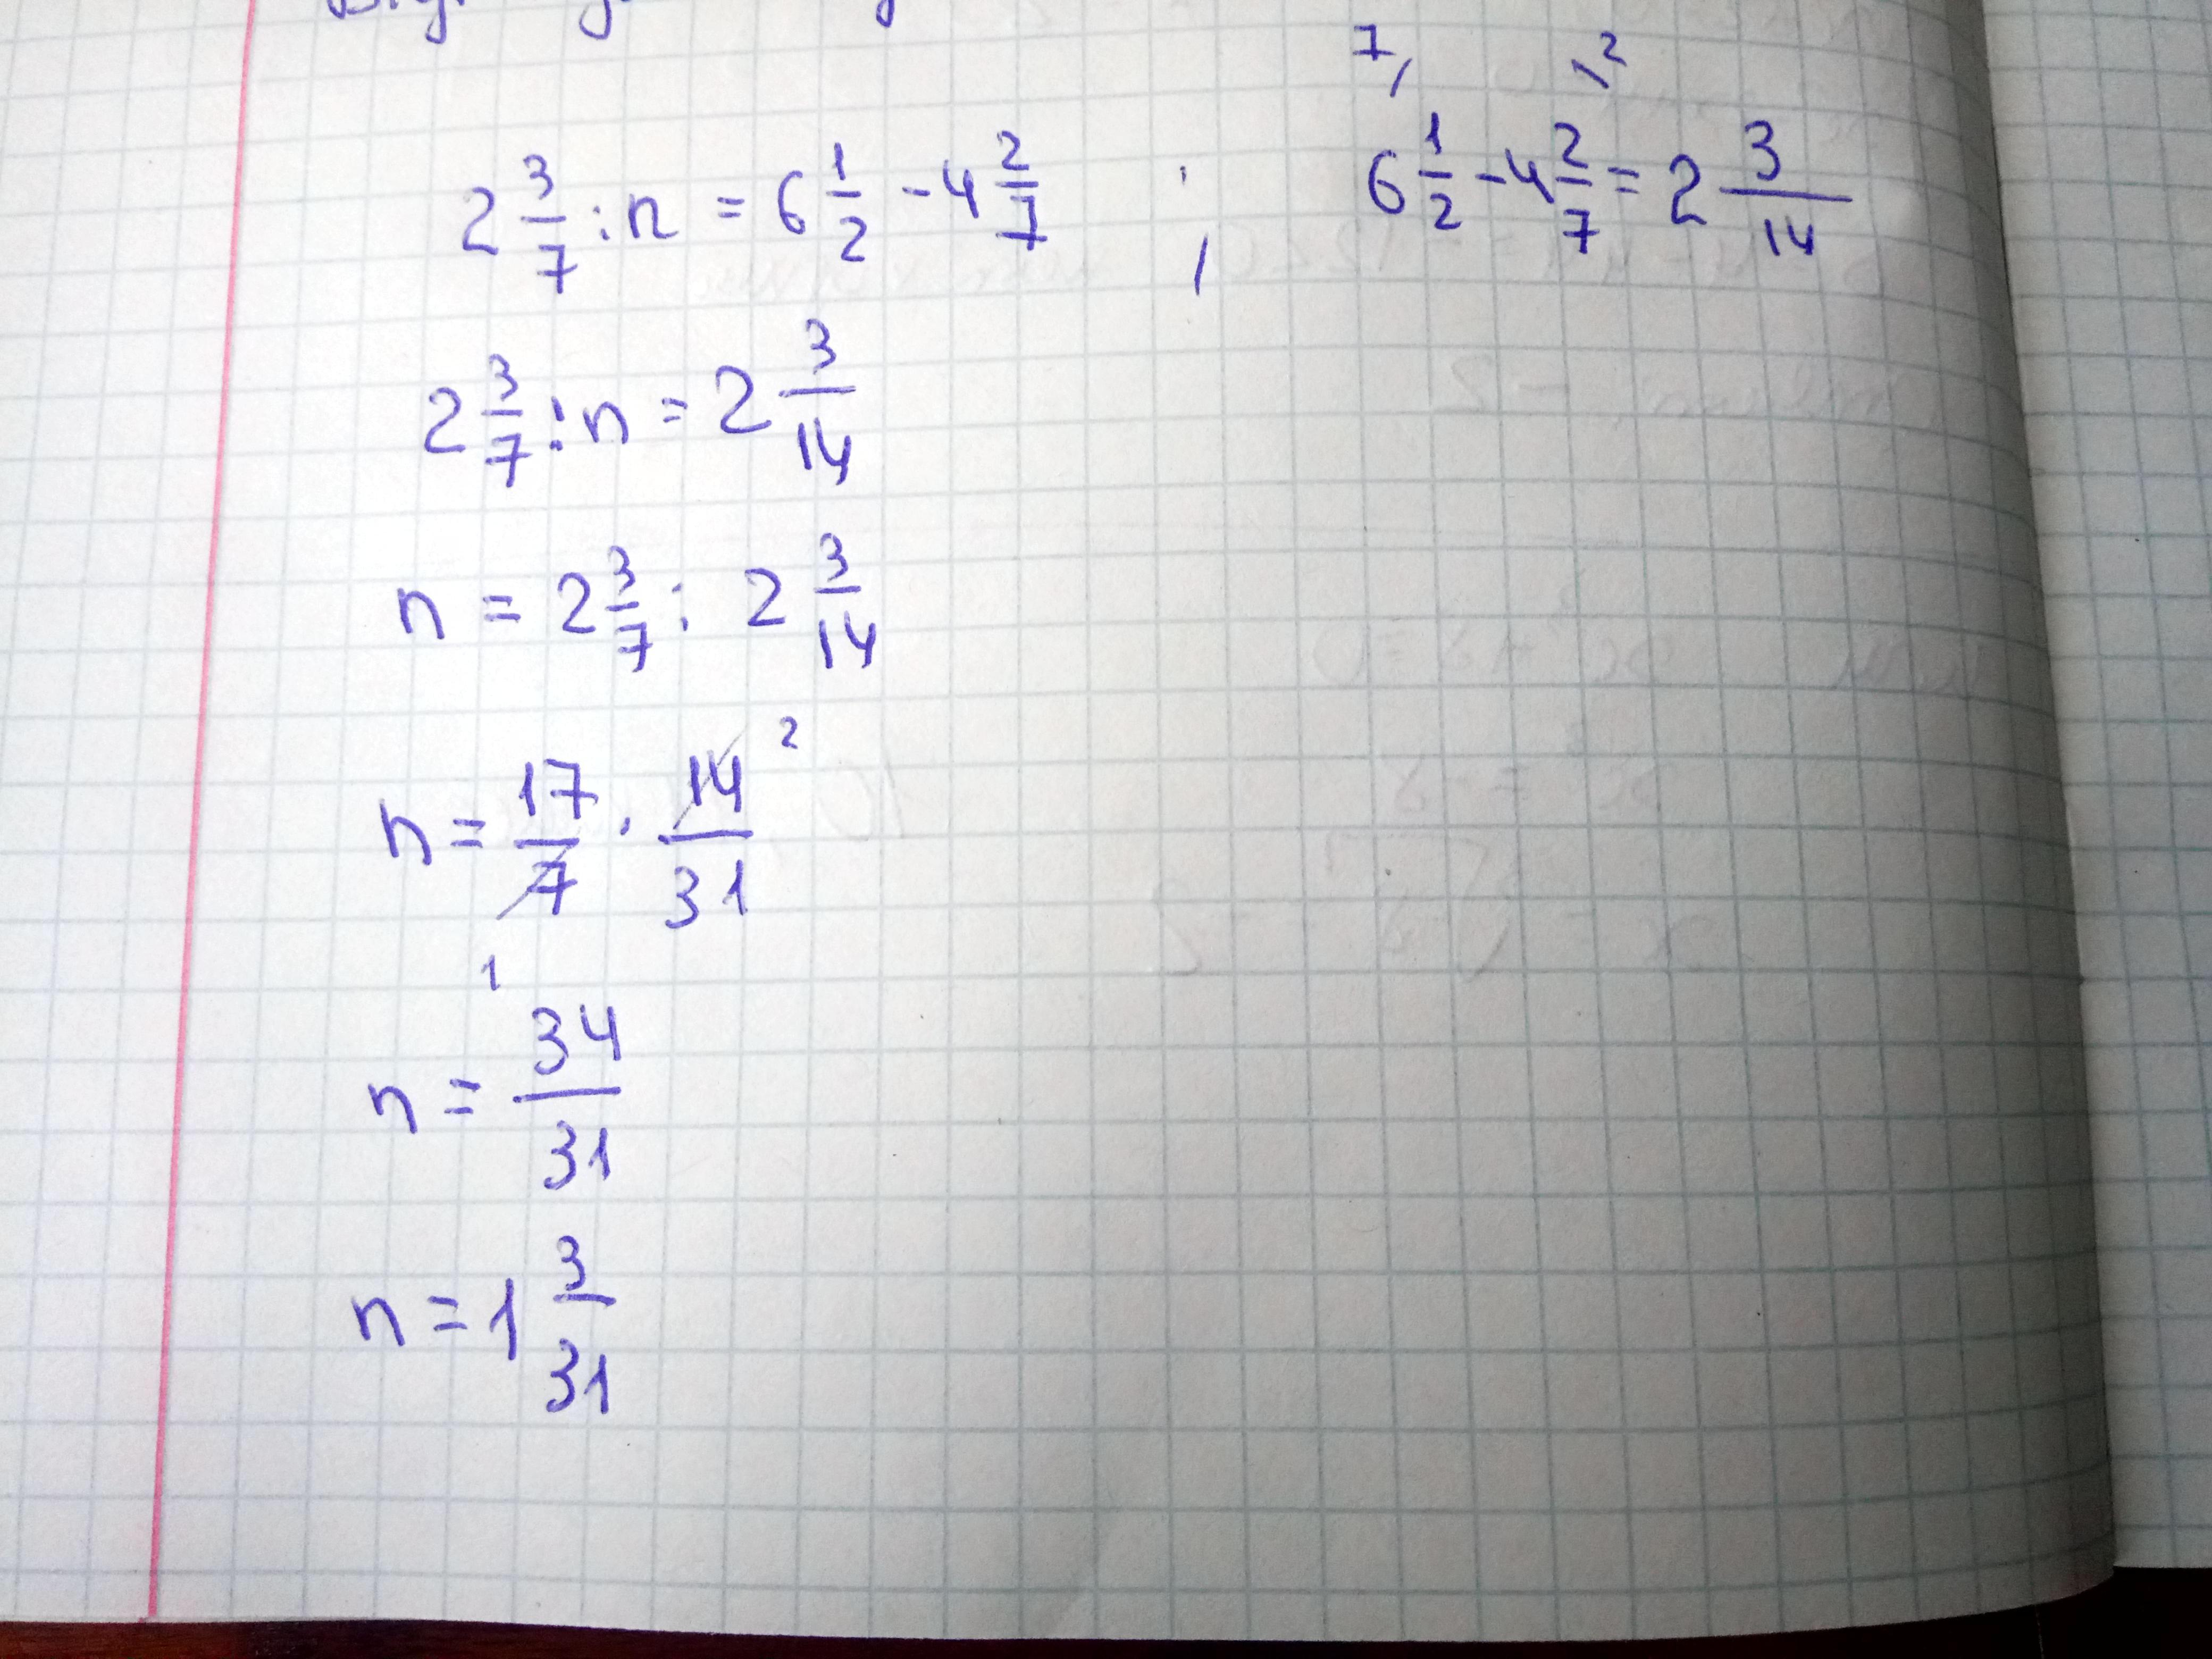 2 3/7 : n = 6 1/2 - 4 2/7 ; 6 1/2 - 4 2/7 = 2 3/14
7 2
2 3/7 : n = 2 3/14
n = 2 3/7 : 2 3/14
n = 17/7 · 14/31
2
1
n = 34/31
n = 1 3/31